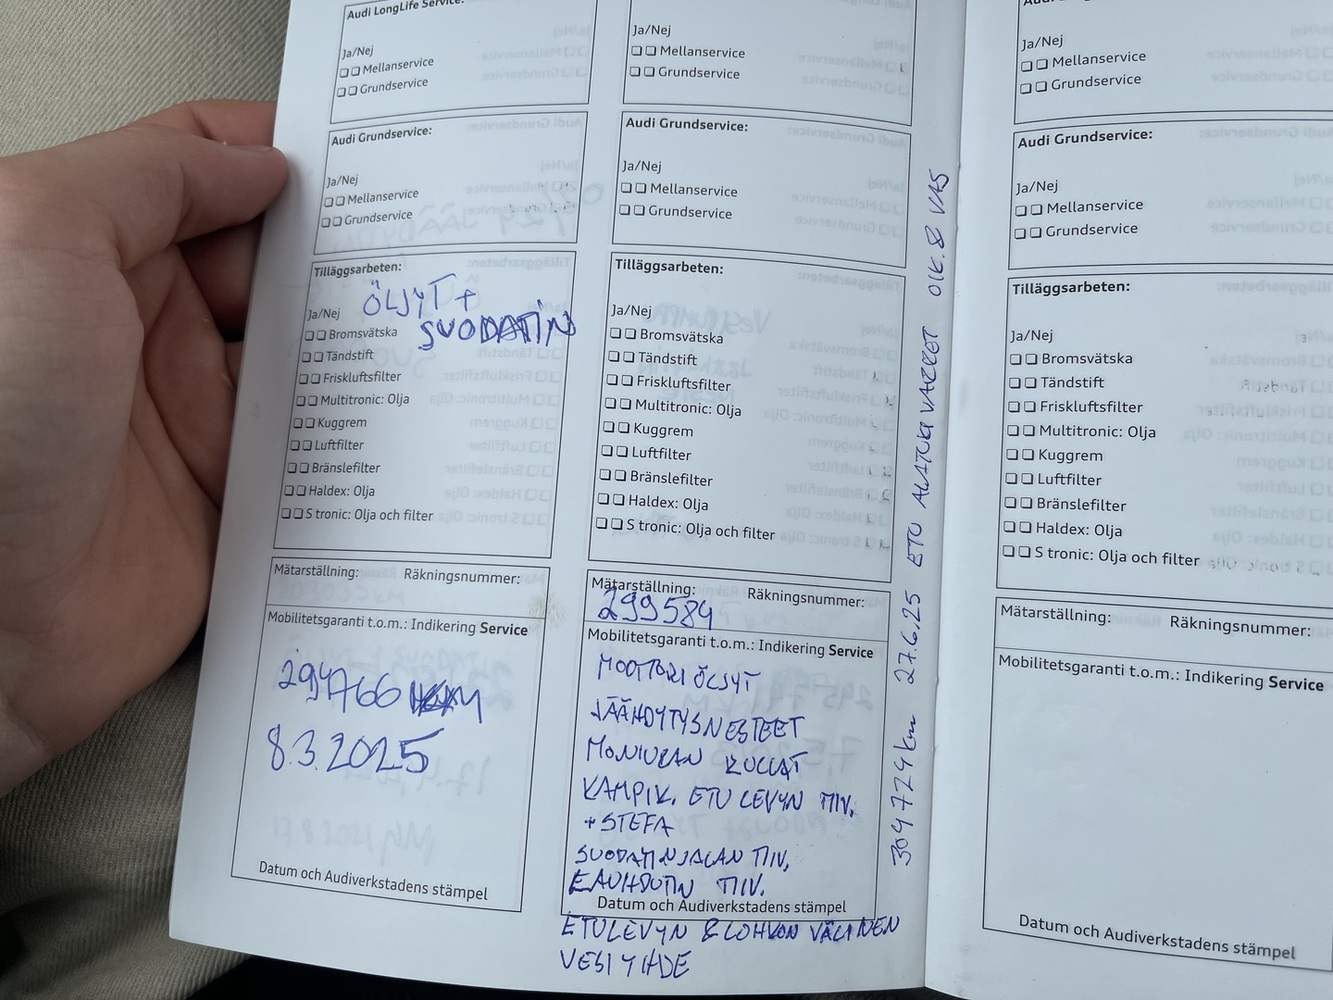 Audi LongLife Service:
Ja/Nej
❑ ❑ Mellanservice
❑ ❑ Grundservice
Audi Grundservice:
Ja/Nej
❑ ❑ Mellanservice
❑ ❑ Grundservice
Tilläggsarbeten:
ÖLJYT +
SUODATIN
Ja/Nej
❑ ❑ Bromsvätska
❑ ❑ Tändstift
❑ ❑ Friskluftsfilter
❑ ❑ Multitronic: Olja
❑ ❑ Kuggrem
❑ ❑ Luftfilter
❑ ❑ Bränslefilter
❑ ❑ Haldex: Olja
❑ ❑ S tronic: Olja och filter
Mätarställning: Räkningsnummer:
Mobilitetsgaranti t.o.m.: Indikering Service
294766 KM
8.3.2025
Datum och Audiverkstadens stämpel
Ja/Nej
❑ ❑ Mellanservice
❑ ❑ Grundservice
Audi Grundservice:
Ja/Nej
❑ ❑ Mellanservice
❑ ❑ Grundservice
Tilläggsarbeten:
Ja/Nej
❑ ❑ Bromsvätska
❑ ❑ Tändstift
❑ ❑ Friskluftsfilter
❑ ❑ Multitronic: Olja
❑ ❑ Kuggrem
❑ ❑ Luftfilter
❑ ❑ Bränslefilter
❑ ❑ Haldex: Olja
❑ ❑ S tronic: Olja och filter
Mätarställning: Räkningsnummer:
299584
Mobilitetsgaranti t.o.m.: Indikering Service
MOOTTORI ÖLJYT
JÄÄHDYTYSNESTEET
MONIURAN RULLAT
KAMPIK. ETU LEVYN TIIV.
+ STEFA
SUODATINJALAN TIIV.
LAUHDUTIN TIIV.
Datum och Audiverkstadens stämpel
ETULEVYN & LOHKON VÄLINEN
VESIYHDE
304724km 27.6.25 ETU ALATUKIVARRET OIK. & VAS
Ja/Nej
❑ ❑ Mellanservice
❑ ❑ Grundservice
Audi Grundservice:
Ja/Nej
❑ ❑ Mellanservice
❑ ❑ Grundservice
Tilläggsarbeten:
Ja/Nej
❑ ❑ Bromsvätska
❑ ❑ Tändstift
❑ ❑ Friskluftsfilter
❑ ❑ Multitronic: Olja
❑ ❑ Kuggrem
❑ ❑ Luftfilter
❑ ❑ Bränslefilter
❑ ❑ Haldex: Olja
❑ ❑ S tronic: Olja och filter
Mätarställning: Räkningsnummer:
Mobilitetsgaranti t.o.m.: Indikering Service
Datum och Audiverkstadens stämpel